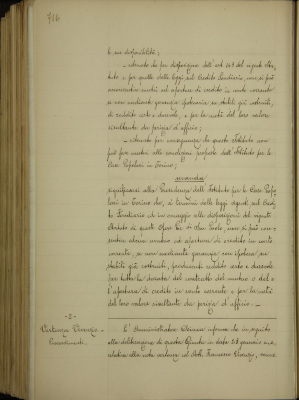 716
le sue disponibilità;
- ritenuto che per disposizione dell'art. 141 del vigente Sta-
tuto e per quelle della legge sul Credito Fondiario, non si può
consentire mutui ed aperture di credito in conto corrente
se non mediante garanzia ipotecaria su stabili già costruiti,
di reddito certo e durevole, e per la metà del loro valore
risultante da perizia d'ufficio;
- ritenuto per conseguenza che questo Istituto non
può far mutui alle condizioni proposte dall'Istituto per le
Case Popolari in Torino;
manda
significarsi alla Presidenza dell'Istituto per le Case Popo-
lari in Torino che, ai termini delle leggi vigenti sul Credi-
to Fondiario ed in omaggio alle disposizioni del vigente
Statuto di queste Opere Pie di San Paolo, non si può con-
sentire alcun mutuo od apertura di credito in conto
corrente, se non mediante garanzia con ipoteca su
stabili già costruiti, producenti reddito certo e durevole
per tutta la durata del contratto del mutuo o del-
l'apertura di credito in conto corrente e per la metà
del loro valore risultante da perizia d'ufficio. -
- 2 -
Provvedimenti.
L'Amministratore informa che in seguito
alla deliberazione di questo Ufficio in data 28 gennaio
relativa alla nota vertenza col Sig.